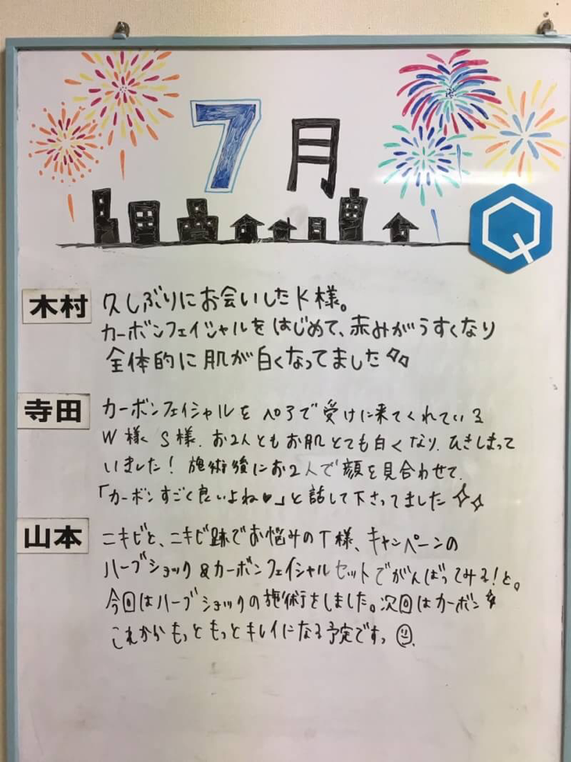 7月
Q
木村
久しぶりにお会いしたK様。
カーボンフェイシャルをはじめて、赤みがうすくなり
全体的に肌が白くなってました
寺田
カーボンフェイシャルをペアで受けに来てくれている
W様、S様、お2人ともお肌とても白くなり、ひきしまって
いました！施術後にお2人で顔を見合わせて、
「カーボンすごく良いよね♥」と話して下さってました
山本
ニキビと、ニキビ跡でお悩みのT様、キャンペーンの
ハーブショック&カーボンフェイシャルセットでがんばってみる！と。
今回はハーブショックの施術をしました。次回はカーボン
これからもっともっとキレイになる予定です。